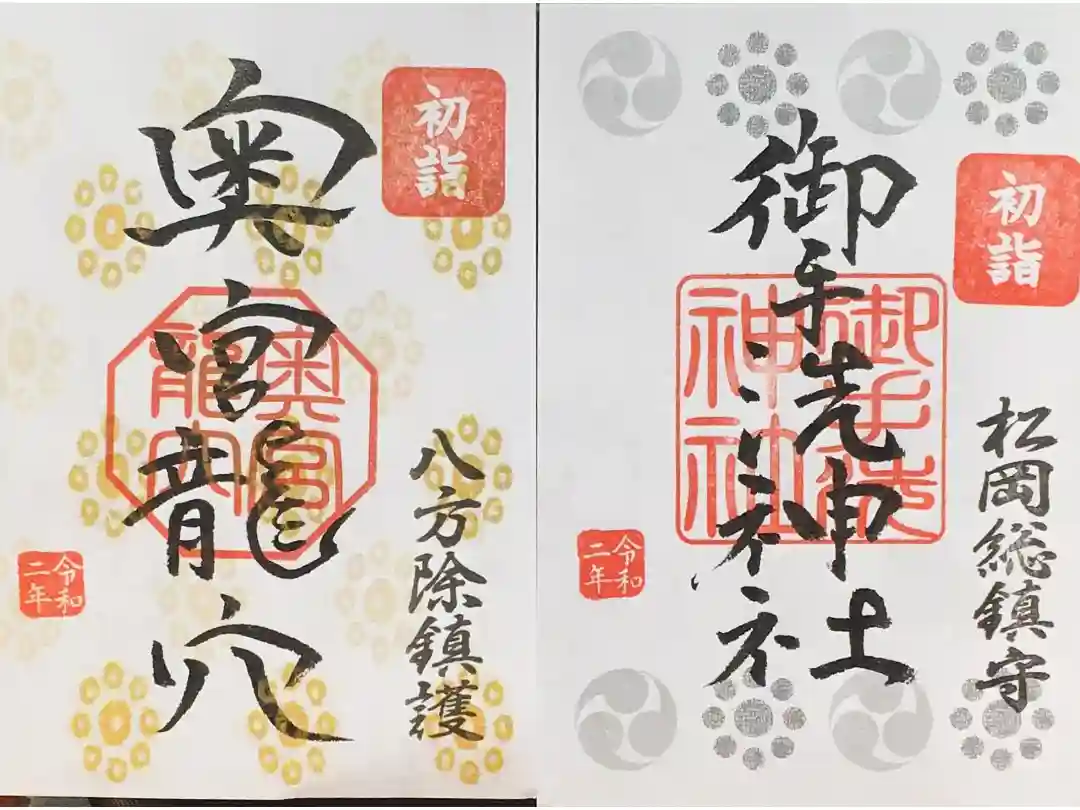 初詣
奥宮龍穴
奥宮
龍穴
八方除鎮護
令和
二年
初詣
御手洗神社
御手洗
神社
松岡総鎮守
令和
二年